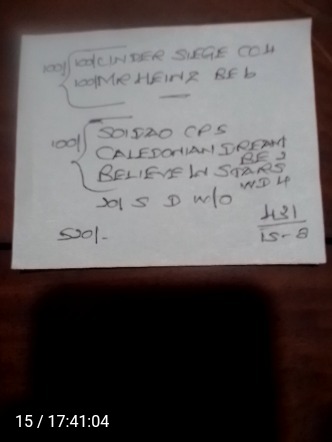 100/ 100/ CINDER SIEGE CC4
100/ MR HEINZ BE 6
100/ SOIDAO CPS
CALEDONIAN DREAM
BE 2
BELIEVE IN STARS
WD 4
20/ S D W/O
431
15-8
520/-
15 / 17:41:04